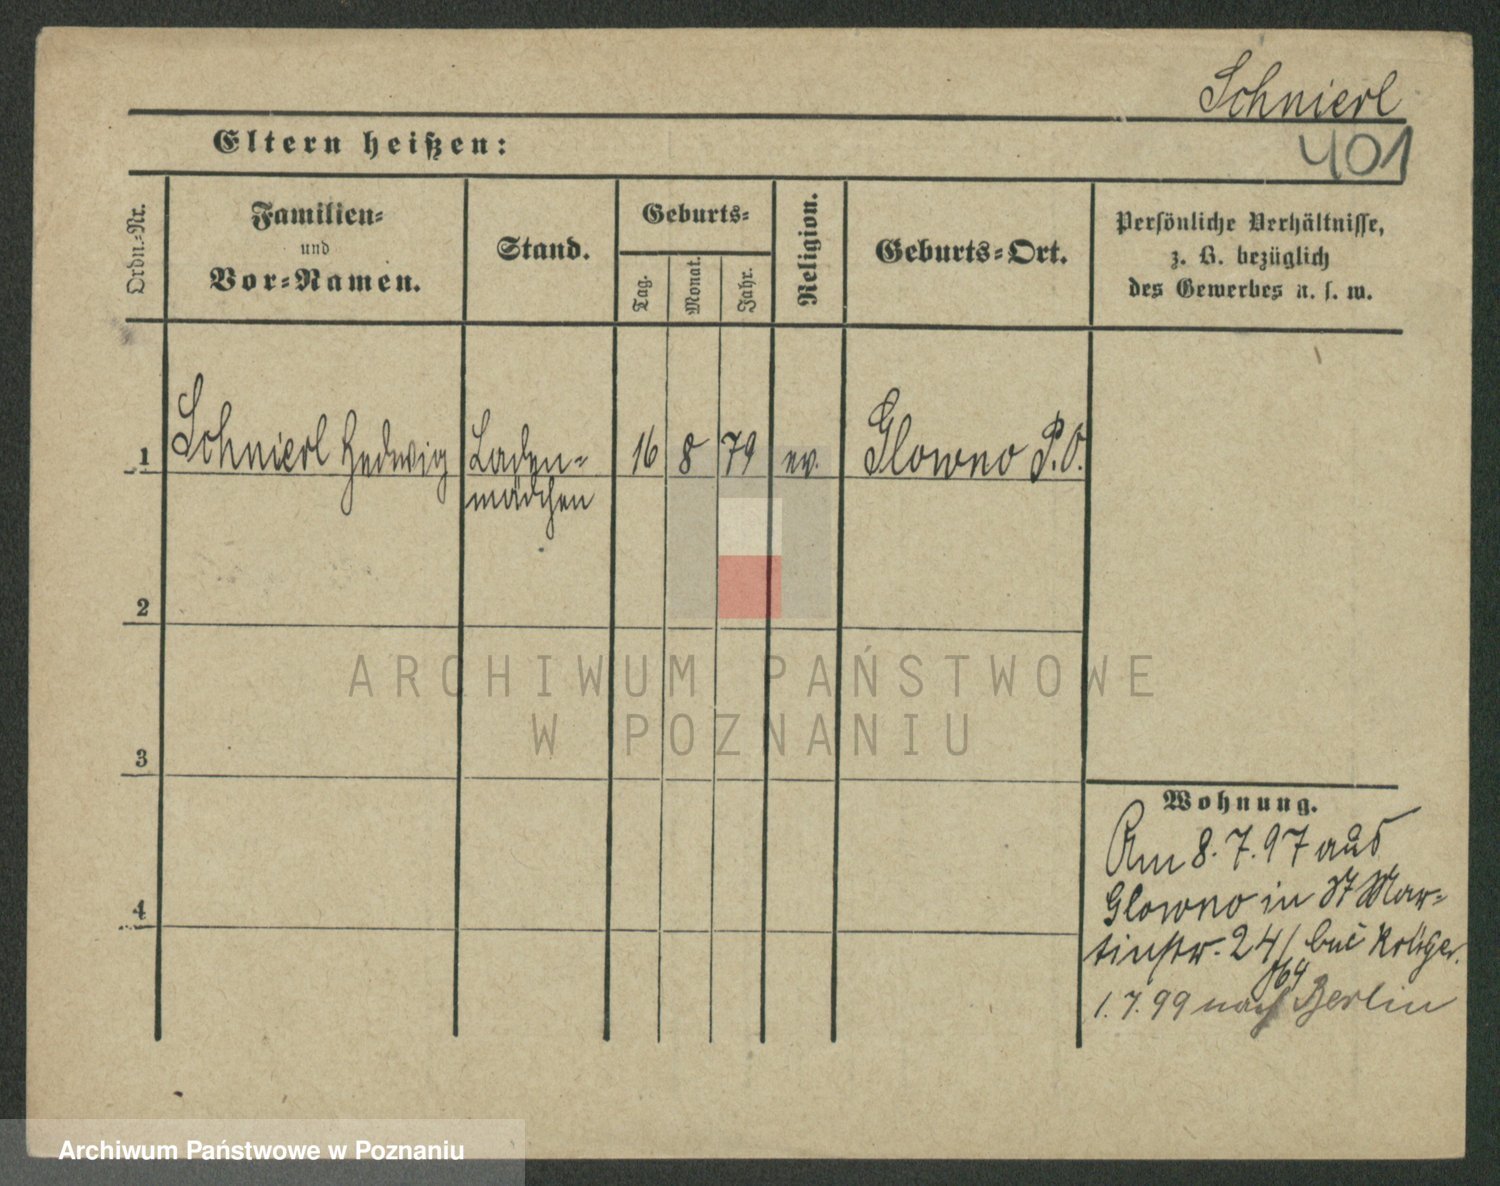 Schnierl
401
Eltern heißen:
Ordn.-Nr.
Familien-
und
Vor-Namen.
Stand.
Geburts-
Tag.
Monat.
Jahr.
Religion.
Geburts-Ort.
Persönliche Verhältnisse,
z. B. bezüglich
des Gewerbes u. s. w.
1 Schnierl Hedwig Laden- 16 8 79 ev. Glowno P.O.
mädchen
2
3
4
ARCHIWUM PAŃSTWOWE
W POZNANIU
Wohnung.
Am 8.7.97 aus
Glowno in St Mar-
tinstr. 24/ bei
1.7.99 nach Berlin
Archiwum Państwowe w Poznaniu